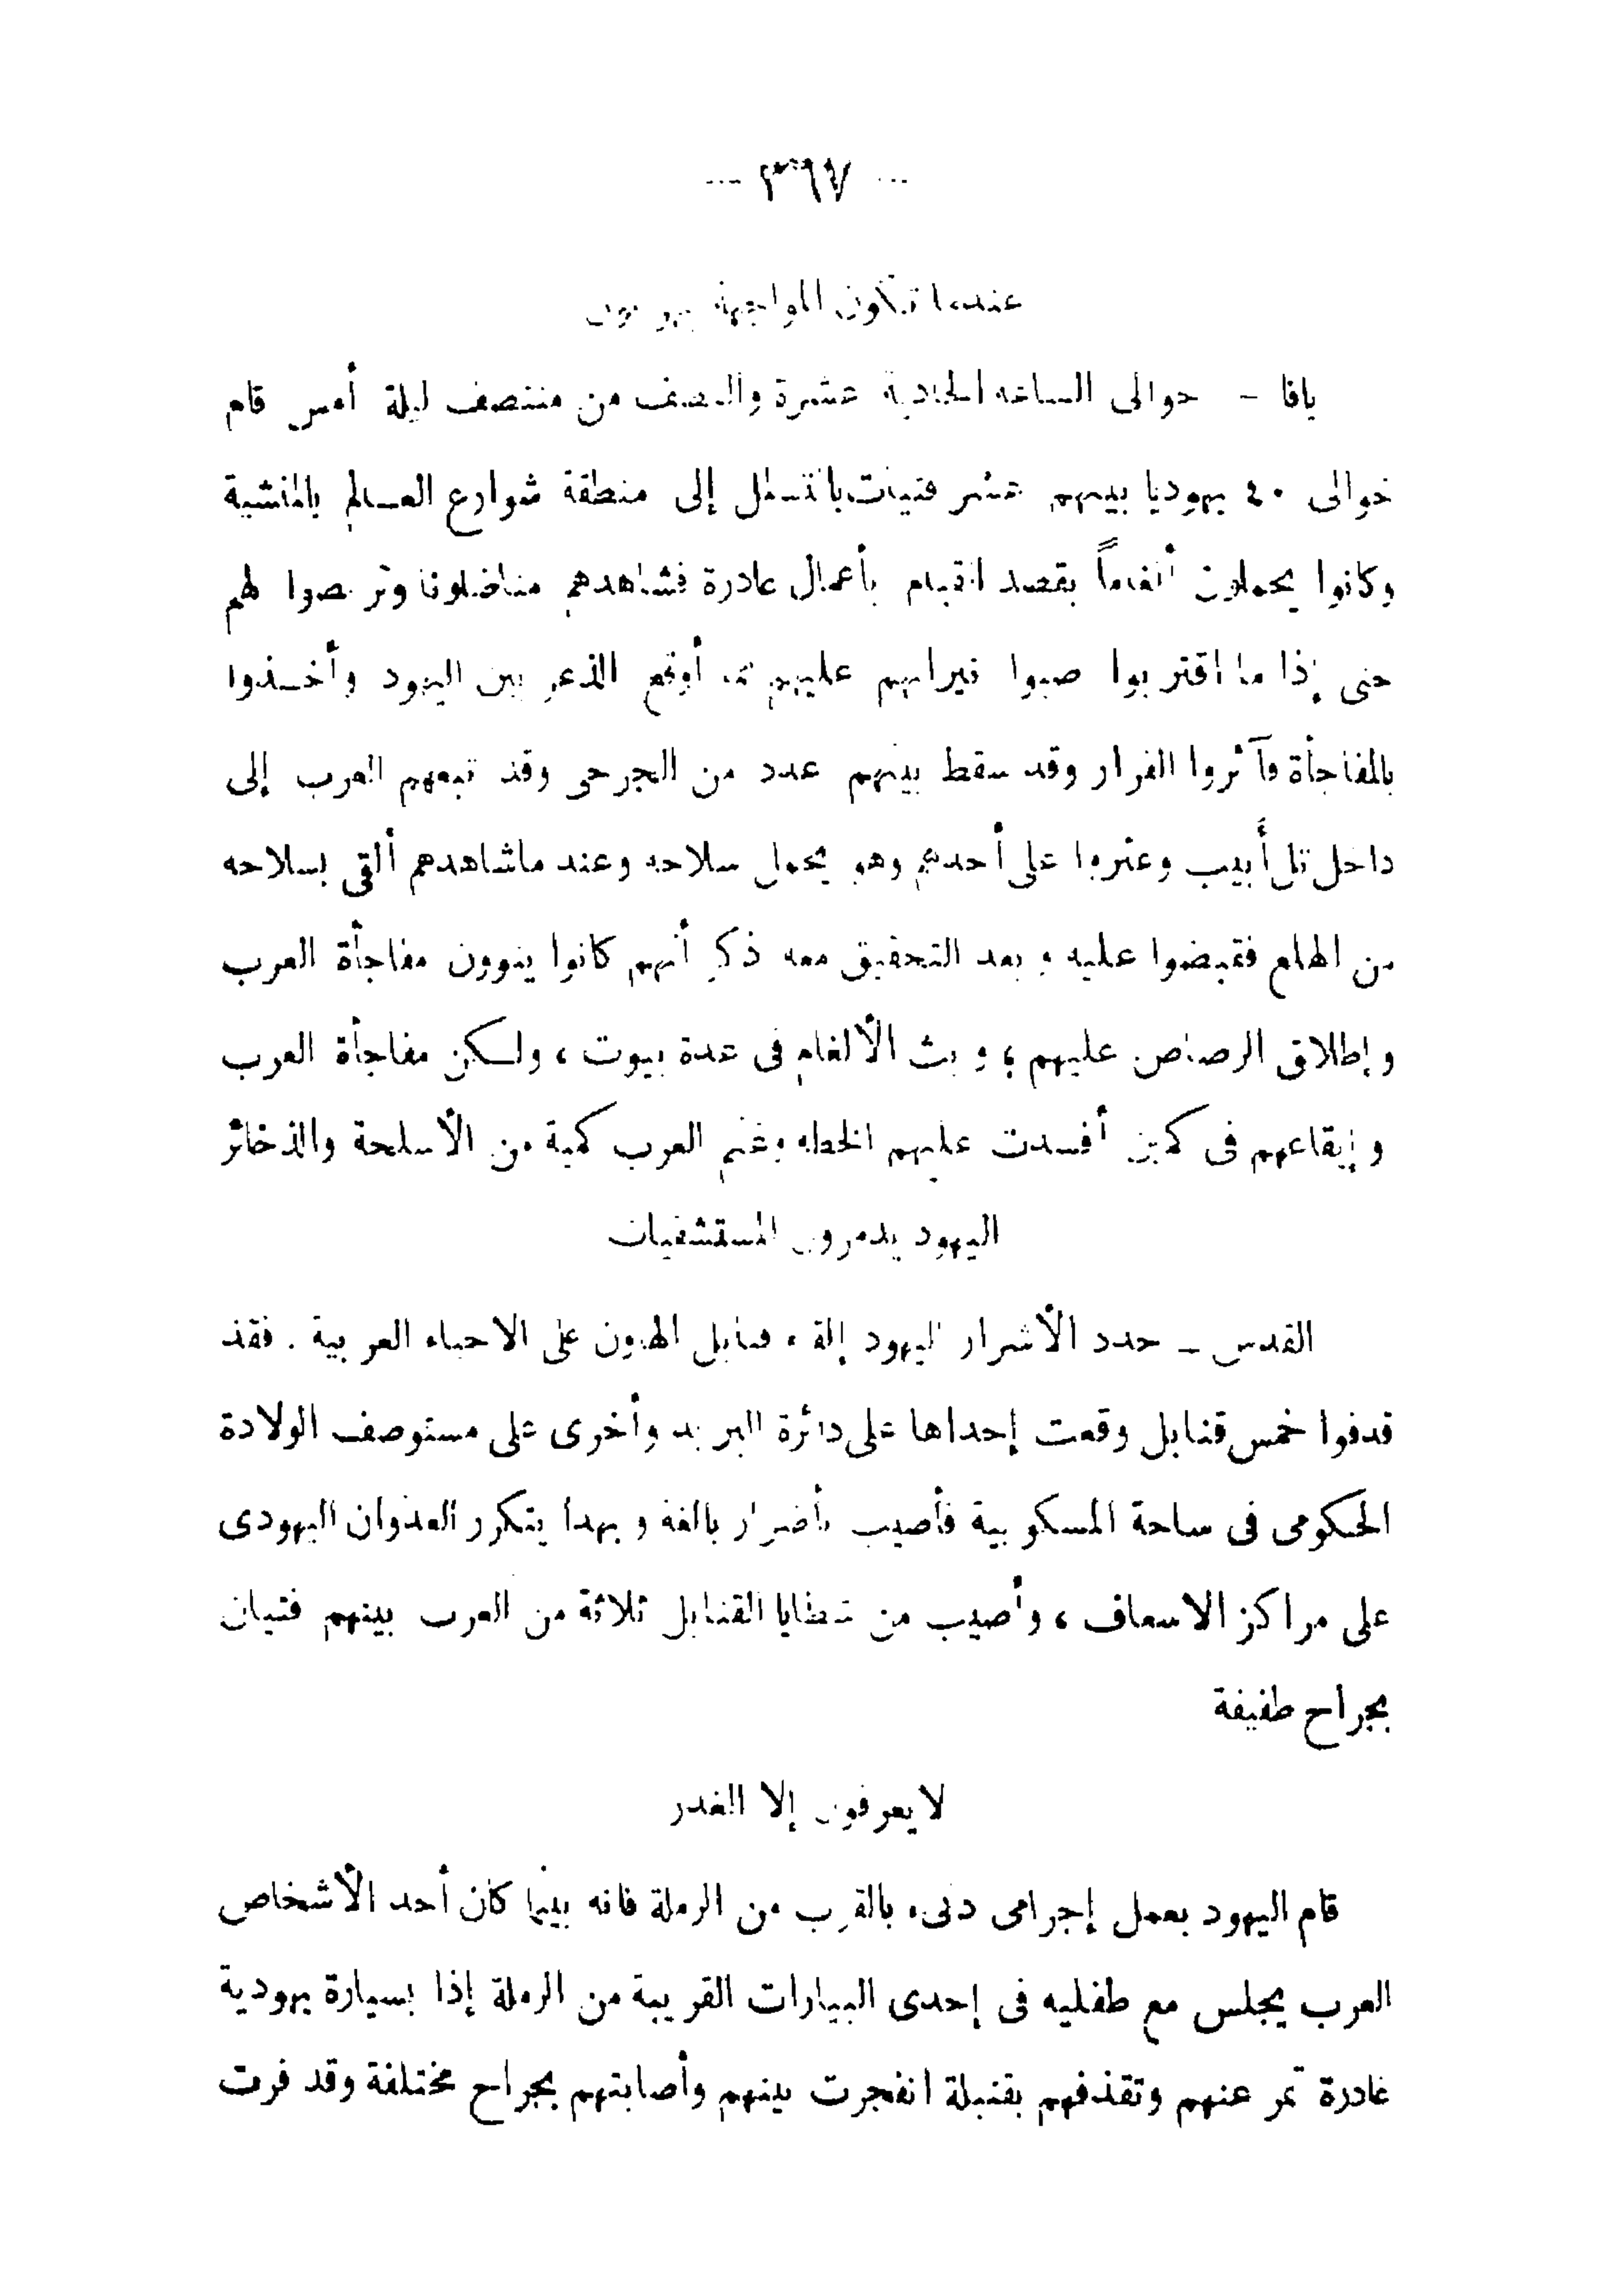 — ٣٦٧ —
عندما تكون المواجهة
يافا - حوالى الساعة الحادية عشرة والنصف من منتصف ليلة أمس قام
حوالى ٤٠ يهوديا بينهم عشر فتيات بالتسلل إلى منطقة شوارع العـالم بالمنشية
وكانوا يحملون ألغاماً بقصد القيام بأعمال غادرة فشاهدهم مناضلونا وتربصوا لهم
حتى إذا ما اقتربوا صبوا نيرانهم عليهم مما أوقع الذعر بين اليهود وأخـذوا
بالمفاجأة فآثروا الفرار وقد سقط بينهم عدد من الجرحى وقد تبعهم العرب إلى
داخل تل أبيب وعثروا على أحدهم وهو يحمل سلاحه وعند ماشاهدهم ألقى بسلاحه
من الهلع فقبضوا عليه و بعد التحقيق معه ذكر أنهم كانوا ينوون مفاجأة العرب
و إطلاق الرصاص عليهم ؛ و بث الألغام فى عدة بيوت ، ولـكن مفاجأة العرب
و إيقاعهم فى كمين أفسدت عليهم الخطه وغنم العرب كمية من الأسلحة والذخائر
اليهود يدمرون المستشفيات
القدس ـ حدد الأشرار اليهود إلقاء قنابل الهاون على الاحياء العربية . فقد
قدفوا خمس قنابل وقعت إحداها على دائرة البريد وأخرى على مستوصف الولادة
الحكومى فى ساحة المسكوبية فأصيب بأضرار بالغة و بهدا يتكرر العدوان اليهودى
على مراكز الاسعاف ، وأصيب من شظايا القنابل ثلاثة من العرب بينهم فتيان
بجراح طفيفة
لا يعرفون إلا الغدر
قام اليهود بعمل إجرامى دنىء بالقرب من الرملة فانه بينما كان أحد الأشخاص
العرب يجلس مع طفليه فى إحدى البيارات القريبة من الرملة إذا بسيارة يهودية
غادرة تمر عنهم وتقذفهم بقنبلة انفجرت بينهم وأصابتهم بجراح مختلفة وقد فرت